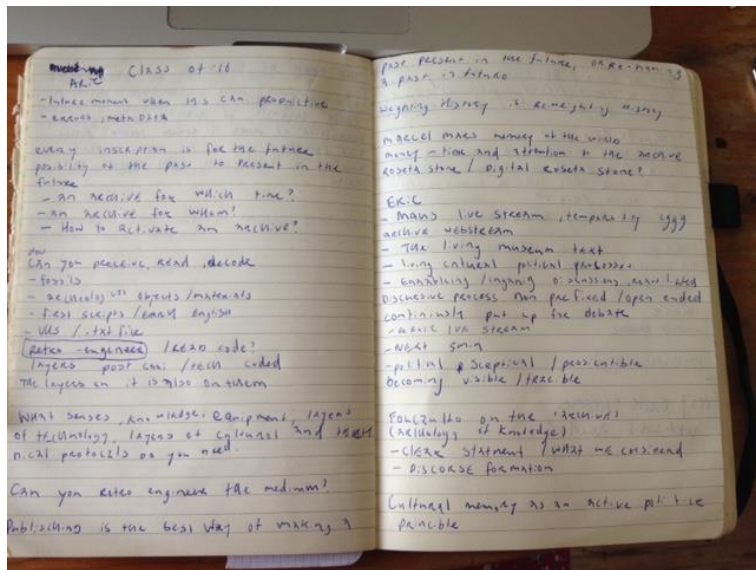 Class of '16
ARIC
- future moment when M.S can proprietive
- errors, meta data
every inscription is for the future
posibility of the past to present in the
future
- an archive for which time?
- an archive for whom?
- How to activate an archive?
Can you perceive, read, decode
- fossils
- objects / materials
- first scripts / early english
- / .txt file
Retro-engineer / READ code?
layers post / tech coded
The layers on it is also on them
What senses, knowledge, equipment, layers
of technology, layers of cultural and tech
nical protocols do you need.
Can you retro engineer the medium?
Publisching is the best way of making a
past present in the future, or
a past in future
Negating History is History
Marcel Mars memory of the world
money - time and attention to the archive
Rosetta stone / Digital Rosetta stone?
ERIC
- live stream, temporality
archive webstream
- The living museum text
- living cultural political processes
- discussions,
Discursive process non prefixed / open ended
continiously put up for debate
- live stream
- NEXT 5min
- political /
becoming visible / tracible
on the 'archive'
( of knowledge)
- CLEAR statment / what we
- DISCORSE formation
Cultural memory as an active politice
principle